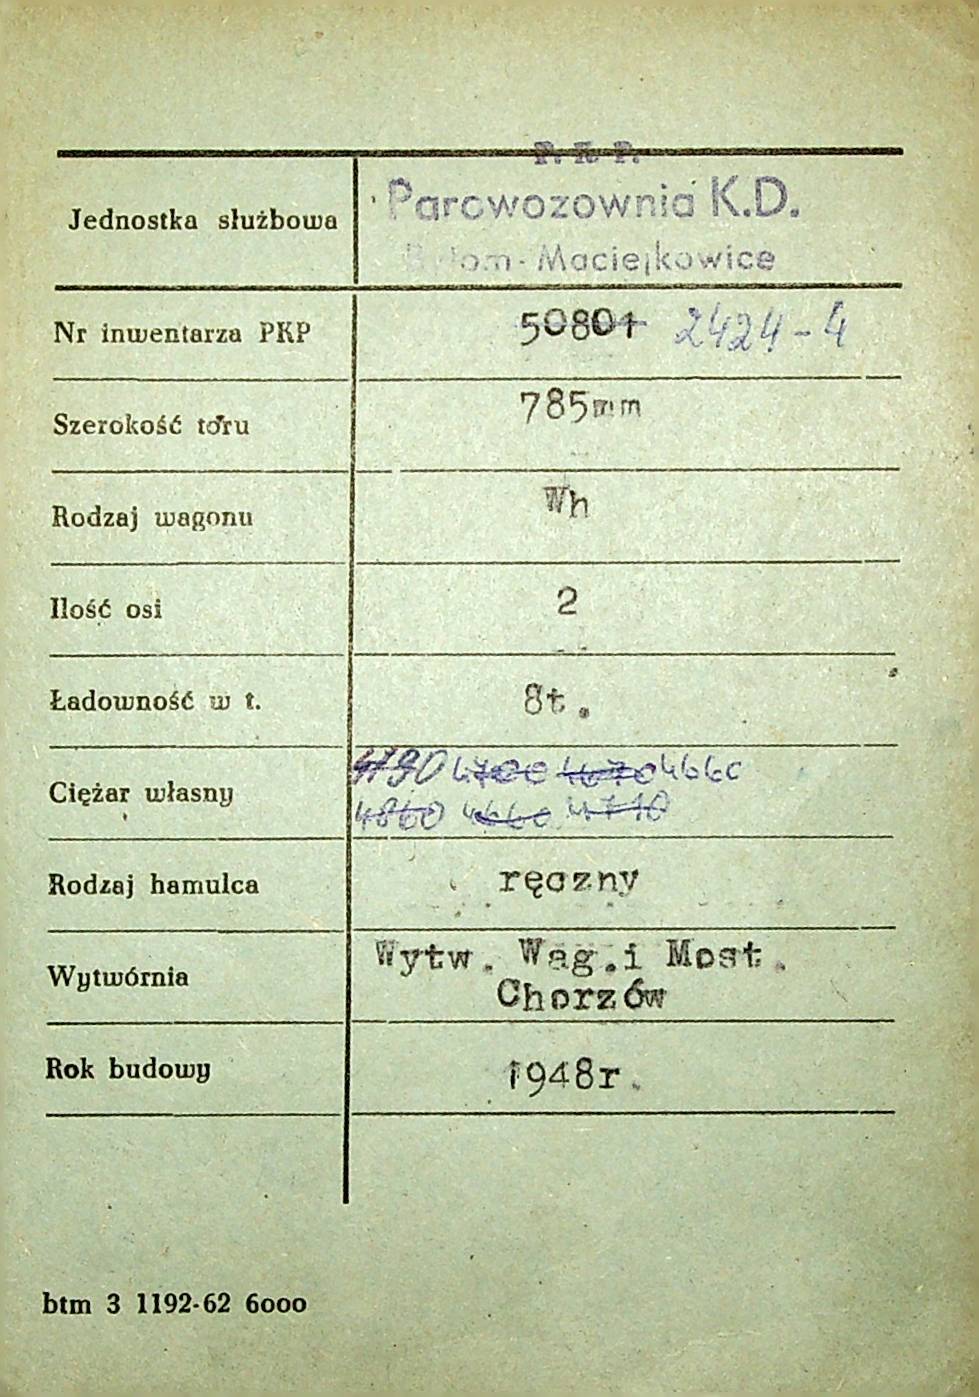 P. K P.
Jednostka służbowa Parowozownia K.D.
Bytom-Maciejkowice
Nr inwentarza PKP 50801 2424-4
Szerokość toru 785mm
Rodzaj wagonu Wh
Ilość osi 2
Ładowność w t. 8t.
Ciężar własny 4700 4670 4660
4860 4660 4710
Rodzaj hamulca ręczny
Wytwórnia Wytw. Wag.i Most.
Chorzów
Rok budowy 1948r.
btm 3 1192-62 6000